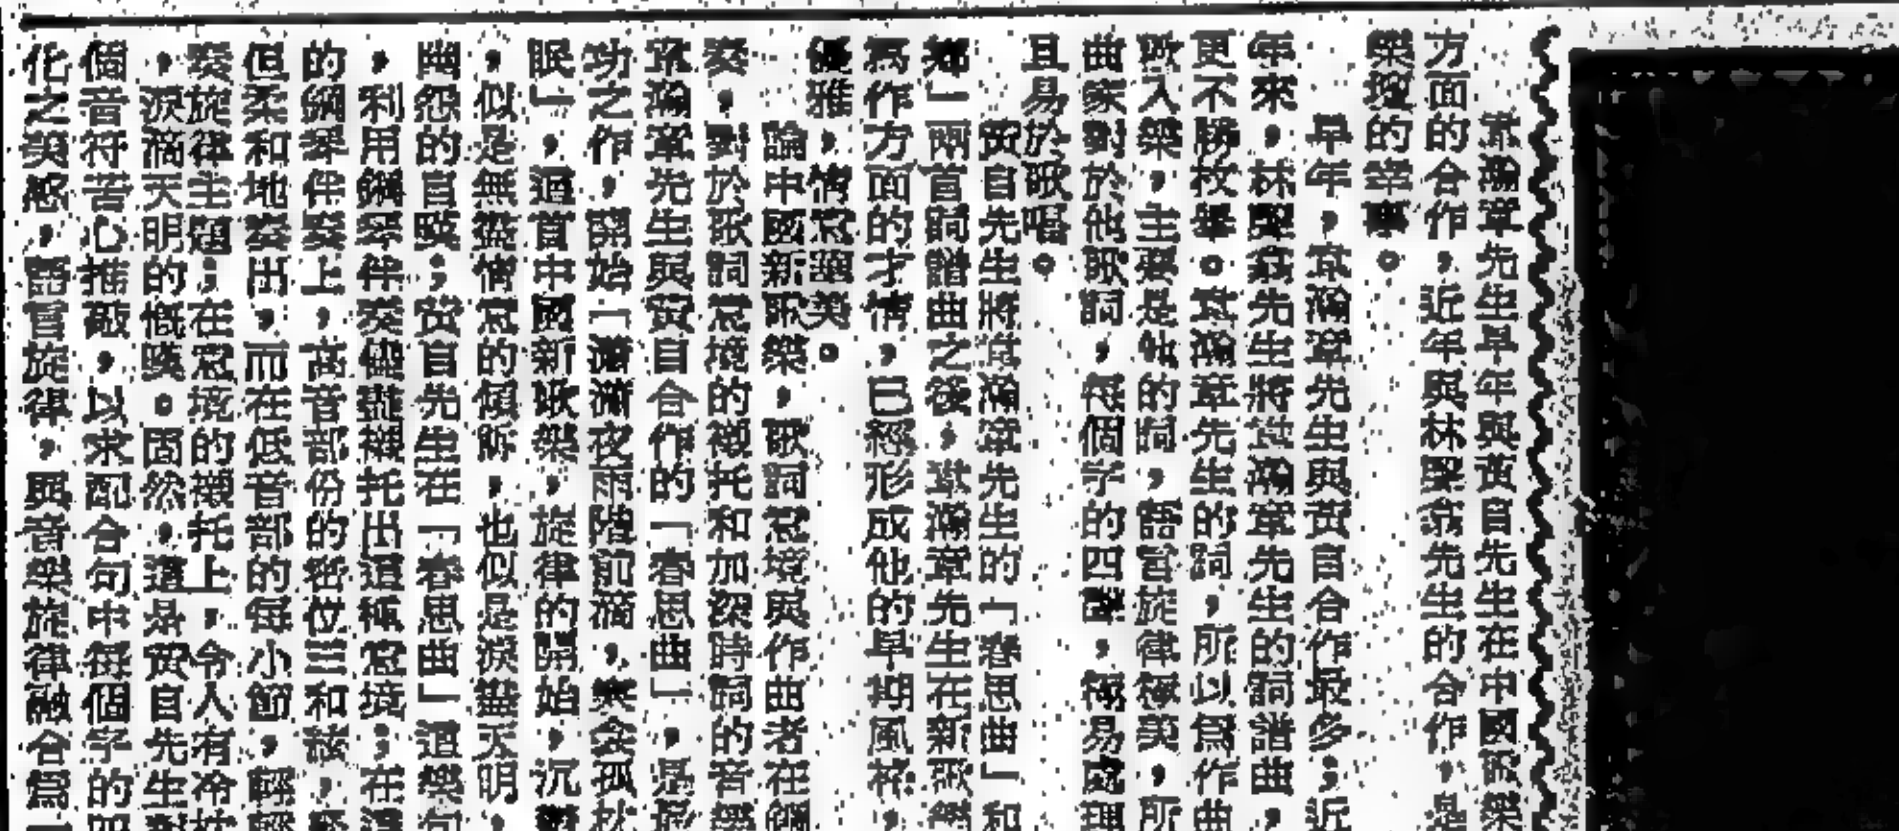 韋瀚章先生早年與黃自先生在中國歌樂
方面的合作，近年與林聲翕先生的合作，是
樂壇的幸事。
早年，韋瀚章先生與黃自合作最多；近
年來，林聲翕先生將韋瀚章先生的詞譜曲，
更不勝枚舉。韋瀚章先生的詞，所以爲作曲
歌入樂，主要是他的詞，語言旋律極美，所
曲家對於他歌詞，每個字的四聲，極易處理
且易於歌唱。
黃自先生將韋瀚章先生的「春思曲」和
」兩首詞譜曲之後，韋瀚章先生在新歌樂
爲作方面的才情，已經形成他的早期風格，
優雅，情意美。
論中國新歌樂，歌詞意境與作曲者在鋼
奏，對於歌詞意境的襯托和加深時詞的音樂
韋瀚章先生與黃自合作的「春思曲」，是最
功之作，開始「瀟瀟夜雨階前滴，寒衾孤枕
眠」，這首中國新歌樂，旋律的開始，沉
，似是無盡情意的傾訴，也似是淚盡天明，
幽怨的官感；黃自先生在「春思曲」這樂句
，利用鋼琴伴奏襯托出這種意境；在這
的鋼琴伴奏上，高音部份的密位三和絃，輕
但柔和地奏出，而在低音部的每小節，輕輕
奏旋律主題；在意境的襯托上，令人有冷枕
，淚滴天明的慨嘆。固然，這是黃自先生對
個音符苦心推敲，以求配合句中每個字的四
化之美感，語言旋律，與音樂旋律融合爲一